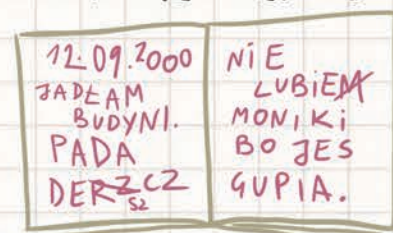 12.09.2000
JADŁAM
BUDYNI.
PADA
DERZCZ
SZ
NiE
LUBiEM
MONiKi
BO JES
GUPiA.